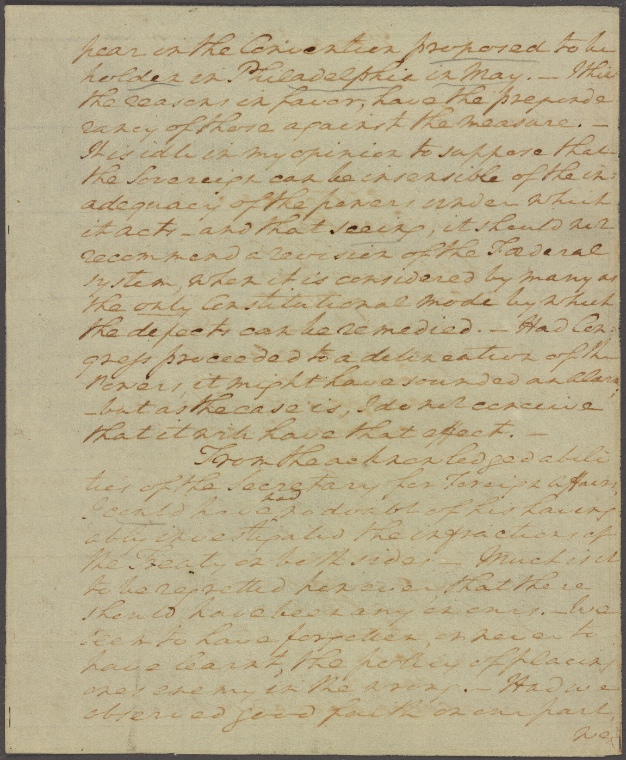 pear in the Convention proposed to be
holden in Philadelphia in May. — I think
the reasons in favor, have the preponde
rancy of those against the measure. —
It is idle in my opinion to suppose that
the Sovereign can be insensible of the in-
adequacy of the powers under which
it acts – and that seeing, it should not
recommend a revision of the Fœderal
system, when it is considered by many as
the only Constitutional mode by which
the defects can be remedied. — Had Con-
gress proceeded to a delineation of the
Powers, it might have sounded an Alarm;
– but as the case is, I do not conceive
that it will have that effect. —
From the acknowledged abili
ties of the Secretary for Foreign Affairs,
I could have had no doubt of his having
ably investigated the infractions of
the Treaty on both sides. – Much is it
to be regretted however, that there
should have been any on ours. – We
seem to have forgotten, or never to
have learnt, the policy of placing
ones enemy in the wrong. – Had we
observed good faith on our part,
we